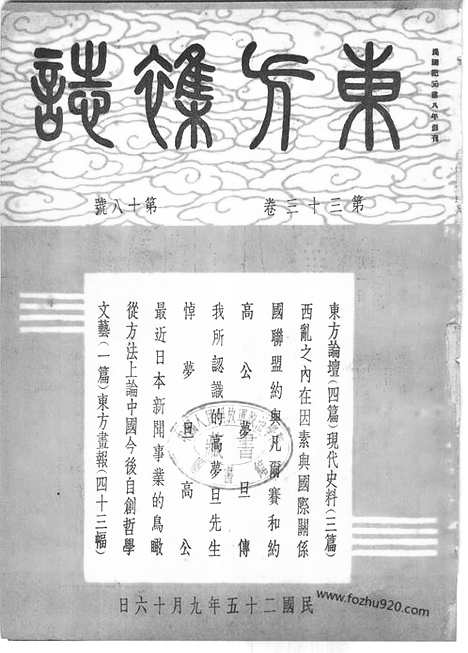 民國紀元前八年創刊
東方雜誌
第三十三卷 第十八號
東方論壇(四篇)現代史料(三篇)
西亂之內在因素與國際關係
國聯盟約與凡爾賽和約
高公夢旦傳
我所認識的高夢旦先生
悼夢旦高公
最近日本新聞事業的鳥瞰
從方法上論中國今後自創哲學
文藝(一篇)東方畫報(四十三幅)
民國二十五年九月十六日
www.fozhu920.com